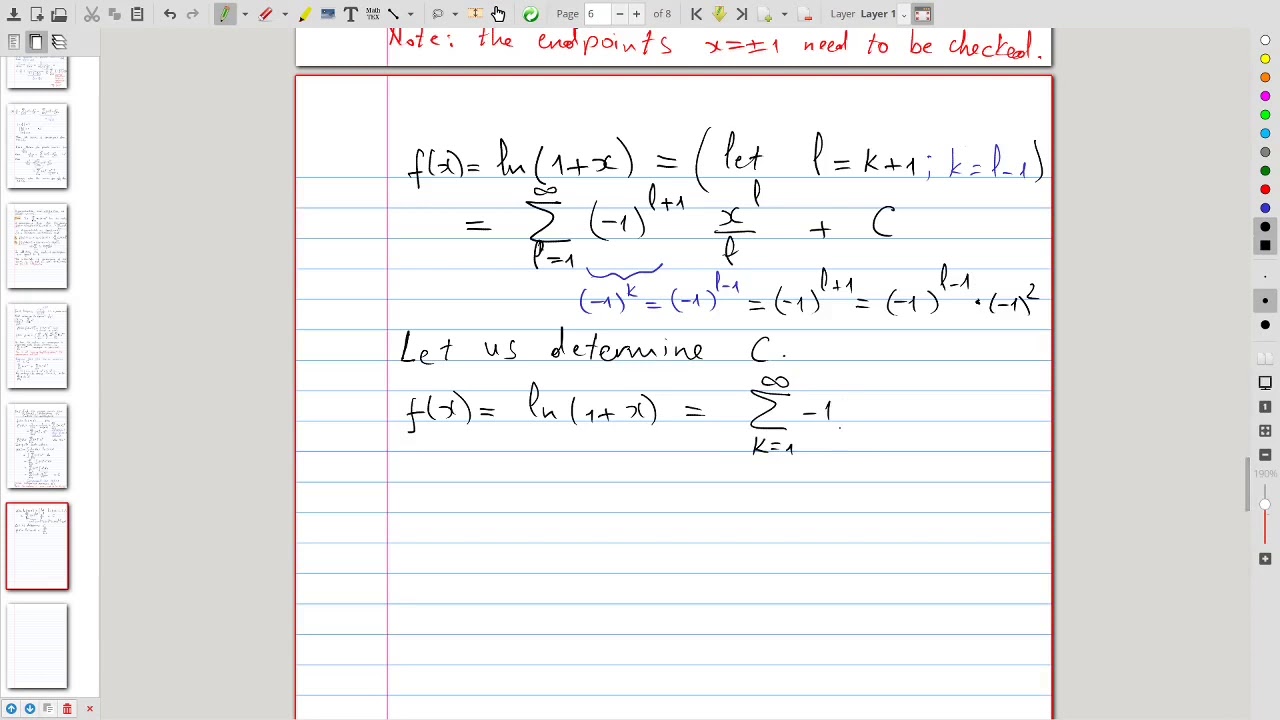 Page 6 of 8 Layer Layer 1
Note: the endpoints x=±1 need to be checked.
f(x)= ln(1+x) = (let l=k+1; k=l-1)
= ∑_{l=1}^{∞} (-1)^{l+1} x^l/l + C
(-1)^k = (-1)^{l-1} = (-1)^{l+1} = (-1)^{l-1} · (-1)^2
Let us determine C.
f(x)= ln(1+x) = ∑_{k=1}^{∞} -1
190%